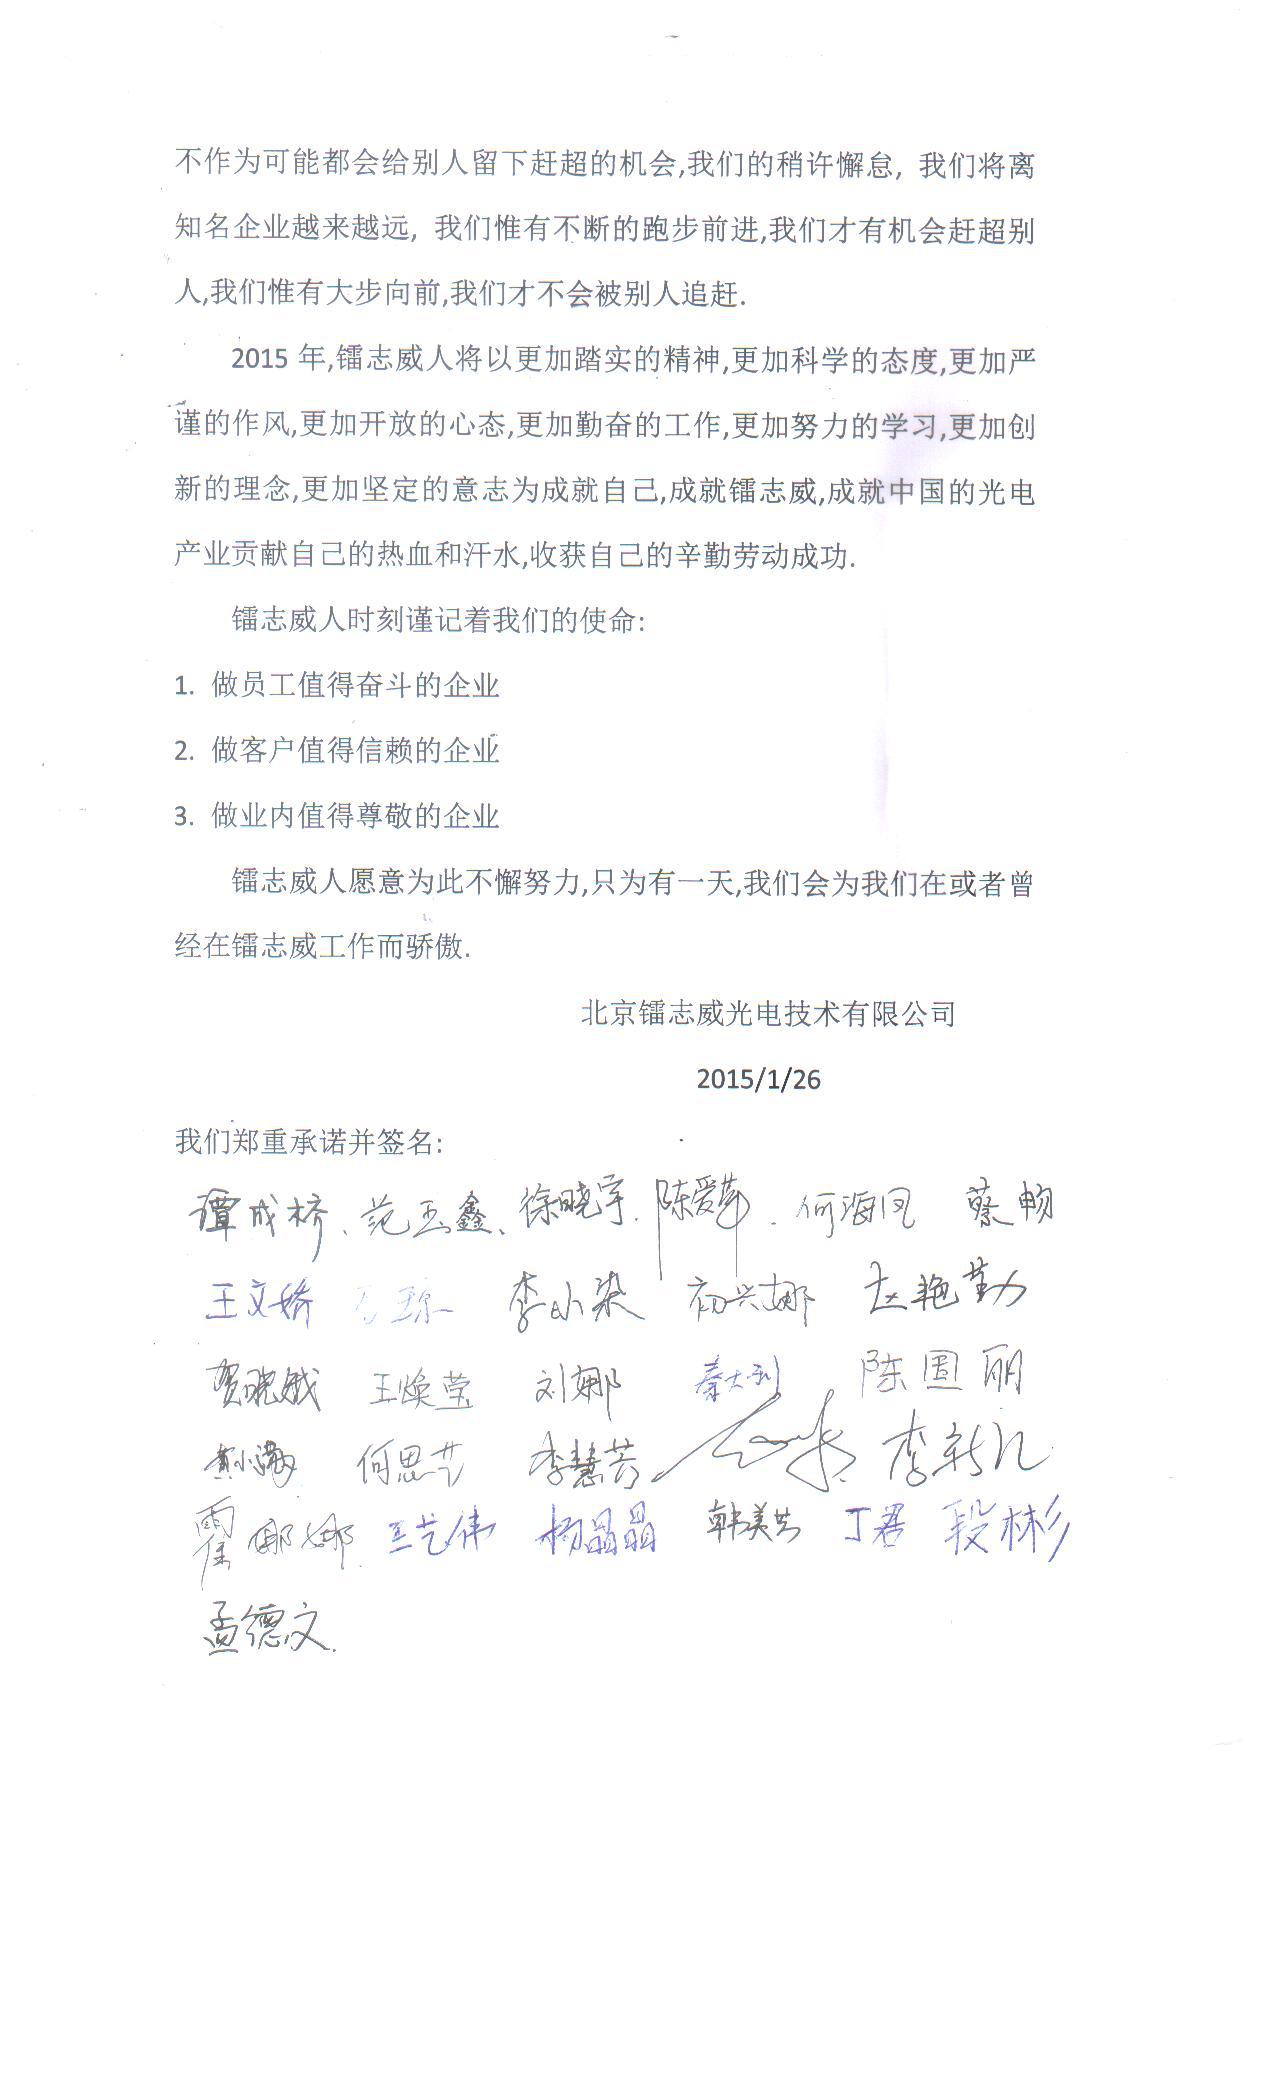 不作为可能都会给别人留下赶超的机会,我们的稍许懈怠, 我们将离
知名企业越来越远, 我们惟有不断的跑步前进,我们才有机会赶超别
人,我们惟有大步向前,我们才不会被别人追赶.
2015 年,镭志威人将以更加踏实的精神,更加科学的态度,更加严
谨的作风,更加开放的心态,更加勤奋的工作,更加努力的学习,更加创
新的理念,更加坚定的意志为成就自己,成就镭志威,成就中国的光电
产业贡献自己的热血和汗水,收获自己的辛勤劳动成功.
镭志威人时刻谨记着我们的使命:
1. 做员工值得奋斗的企业
2. 做客户值得信赖的企业
3. 做业内值得尊敬的企业
镭志威人愿意为此不懈努力,只为有一天,我们会为我们在或者曾
经在镭志威工作而骄傲.
北京镭志威光电技术有限公司
2015/1/26
我们郑重承诺并签名:
谭成桥、范玉鑫、徐晓宇. 陈爱苹. 何海凤 蔡畅
王文娇 李小染 初兴娜 赵艳勤
贺晓娥 王焕莹 刘娜 秦大利 陈国丽
黄小满 何思艺 李慧芳 李新江
霍娜娜 王艺伟 杨晶晶 韩美芸 丁君 段林彬
孟德文.